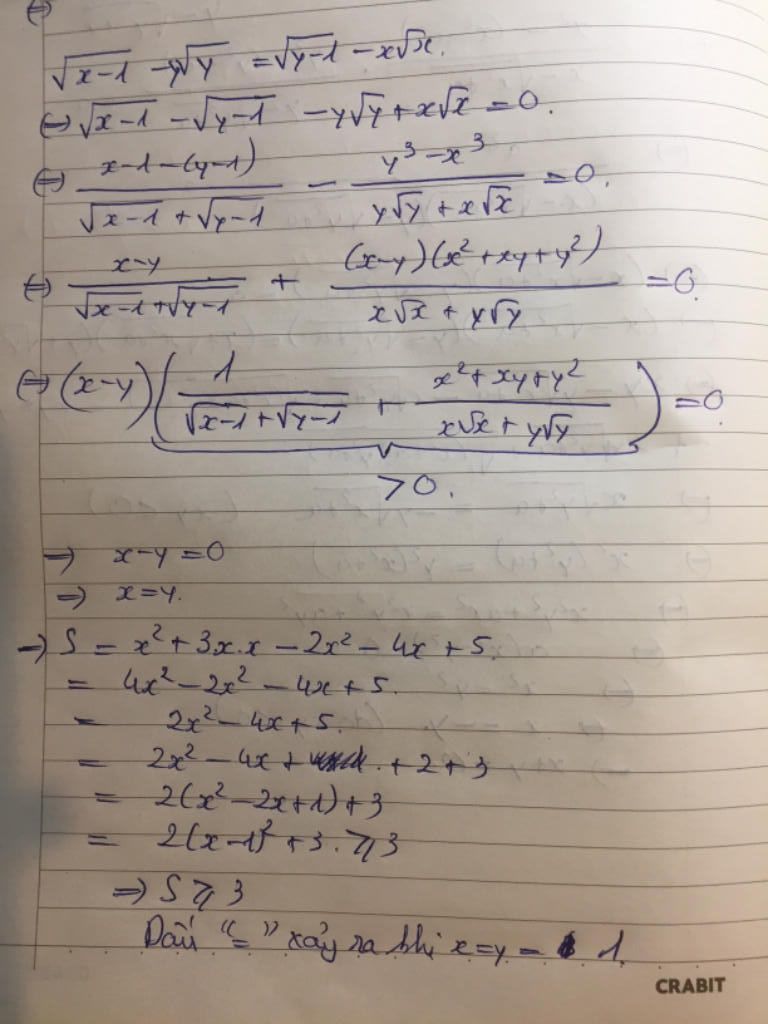 ⇔
√(x-1) - y√y = √(y-1) - x√x.
⇔ √(x-1) - √(y-1) - y√y + x√x = 0.
⇔ (x-1-(y-1))/(√(x-1) + √(y-1)) - (y³ - x³)/(y√y + x√x) = 0.
⇔ (x-y)/(√(x-1) + √(y-1)) + ((x-y)(x² + xy + y²))/(x√x + y√y) = 0.
⇔ (x-y)(1/(√(x-1) + √(y-1)) + (x² + xy + y²)/(x√x + y√y)) = 0.
> 0.
⇒ x-y = 0
⇒ x = y.
⇒ S = x² + 3x.x - 2x² - 4x + 5.
= 4x² - 2x² - 4x + 5.
= 2x² - 4x + 5.
= 2x² - 4x + . + 2 + 3
= 2(x² - 2x + 1) + 3
= 2(x-1)² + 3. ⩾ 3
⇒ S ⩾ 3
Dấu "=" xảy ra khi x = y = 1.
CRABIT